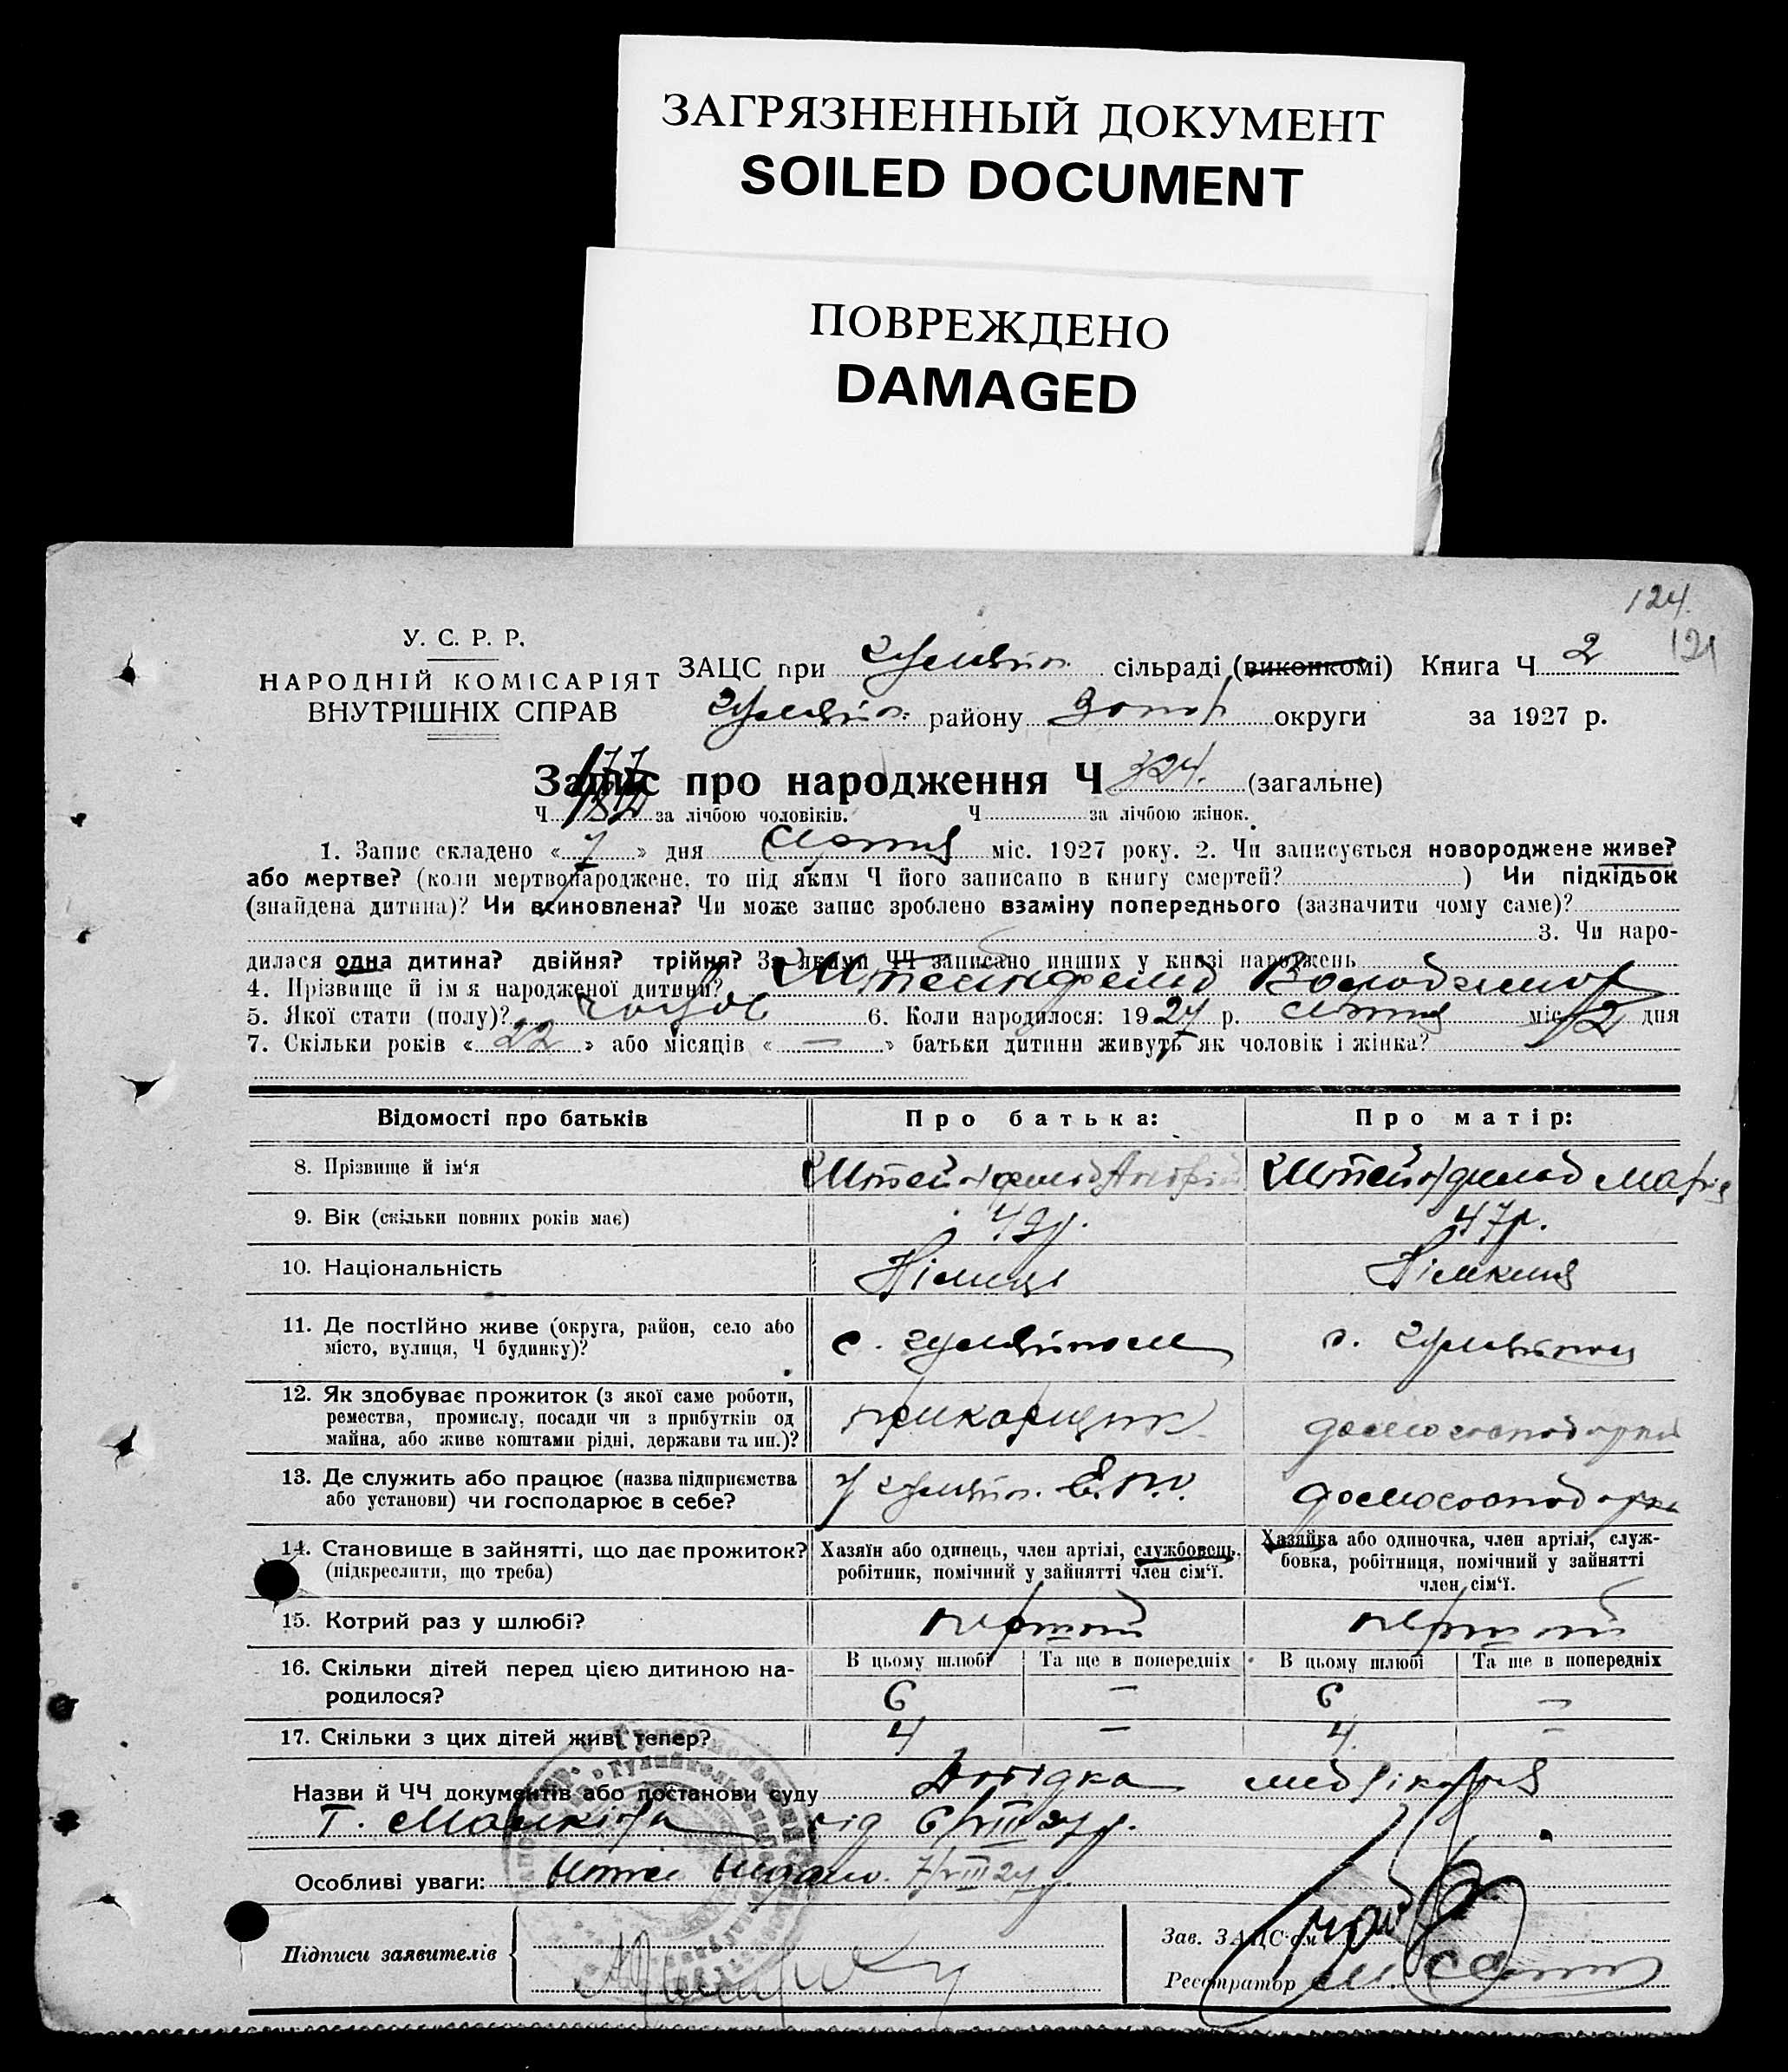 ЗАГРЯЗНЕННЫЙ ДОКУМЕНТ
SOILED DOCUMENT
ПОВРЕЖДЕНО
DAMAGED
124
121
У. С. Р. Р.
НАРОДНІЙ КОМІСАРІЯТ
ВНУТРІШНІХ СПРАВ
ЗАЦС при Гуляйпіл. сільраді (виконкомі) Книга Ч 2
Гуляйпіл. району Запор округи за 1927 р.
Запис про народження Ч 324. (загальне)
177
Ч за лічбою чоловіків. Ч за лічбою жінок.
1. Запис складено « 7 » дня Серпня міс. 1927 року. 2. Чи записується новороджене живе?
або мертве? (коли мертвонароджене, то під яким Ч його записано в книгу смертей? ) Чи підкідьок
(знайдена дитина)? Чи всиновлена? Чи може запис зроблено взаміну попереднього (зазначити чому саме)?
3. Чи наро-
дилася одна дитина? двійня? трійня? За якими ЧЧ записано инших у книзі народжень
4. Прізвище й ім'я народженої дитини? Штейнфельд Володимир
5. Якої стати (полу)? чолов 6. Коли народилося: 1927 р. Серпня міс. 2 дня
7. Скільки років « 22 » або місяців « — » батьки дитини живуть як чоловік і жінка?
Відомості про батьків Про батька: Про матір:
8. Прізвище й ім'я Штейнфельд Андрій Штейнфельд Марія
9. Вік (скільки повних років має) 49р. 47р.
10. Національність Німець Німкиня
11. Де постійно живе (округа, район, село або
місто, вулиця, Ч будинку)? с. Гуляйполе с. Гуляйполе
12. Як здобуває прожиток (з якої саме роботи,
ремества, промислу, посади чи з прибутків од
майна, або живе коштами рідні, держави та ин.)? прикащик домогосподарка
13. Де служить або працює (назва підприємства
або установи) чи господарює в себе? у Гуляйпіл. Є.П.О. домогосподарка
14. Становище в зайнятті, що дає прожиток?
(підкреслити, що треба)
Хазяїн або одинець, член артілі, службовець,
робітник, помічний у зайнятті член сім'ї.
Хазяйка або одиночка, член артілі, служ-
бовка, робітниця, помічний у зайнятті
член сім'ї.
15. Котрий раз у шлюбі? перший перший
В цьому шлюбі Та ще в попередніх В цьому шлюбі Та ще в попередніх
16. Скільки дітей перед цією дитиною на-
родилося? 6 — 6 —
17. Скільки з цих дітей живі тепер? 4 — 4 —
Назви й ЧЧ документів або постанови суду Довідка
від 6/VIII 27р.
Особливі уваги: 7/VIII 27р.
Підписи заявителів
Зав. ЗАЦС'ом
Реєстратор